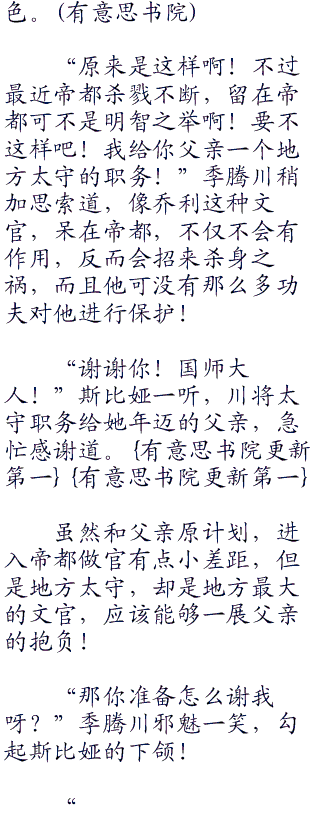 色。(有意思书院)
“原来是这样啊！不过
最近帝都杀戮不断，留在帝
都可不是明智之举啊！要不
这样吧！我给你父亲一个地
方太守的职务！”季腾川稍
加思索道，像乔利这种文
官，呆在帝都，不仅不会有
作用，反而会招来杀身之
祸，而且他可没有那么多功
夫对他进行保护！
“谢谢你！国师大
人！”斯比娅一听，川将太
守职务给她年迈的父亲，急
忙感谢道。{有意思书院更新
第一} {有意思书院更新第一}
虽然和父亲原计划，进
入帝都做官有点小差距，但
是地方太守，却是地方最大
的文官，应该能够一展父亲
的抱负！
“那你准备怎么谢我
呀？”季腾川邪魅一笑，勾
起斯比娅的下颌！
“